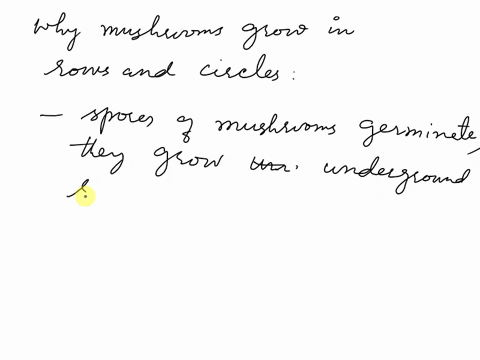 Why mushrooms grow in
rows and circles:
- spores of mushrooms germinate,
they grow underground